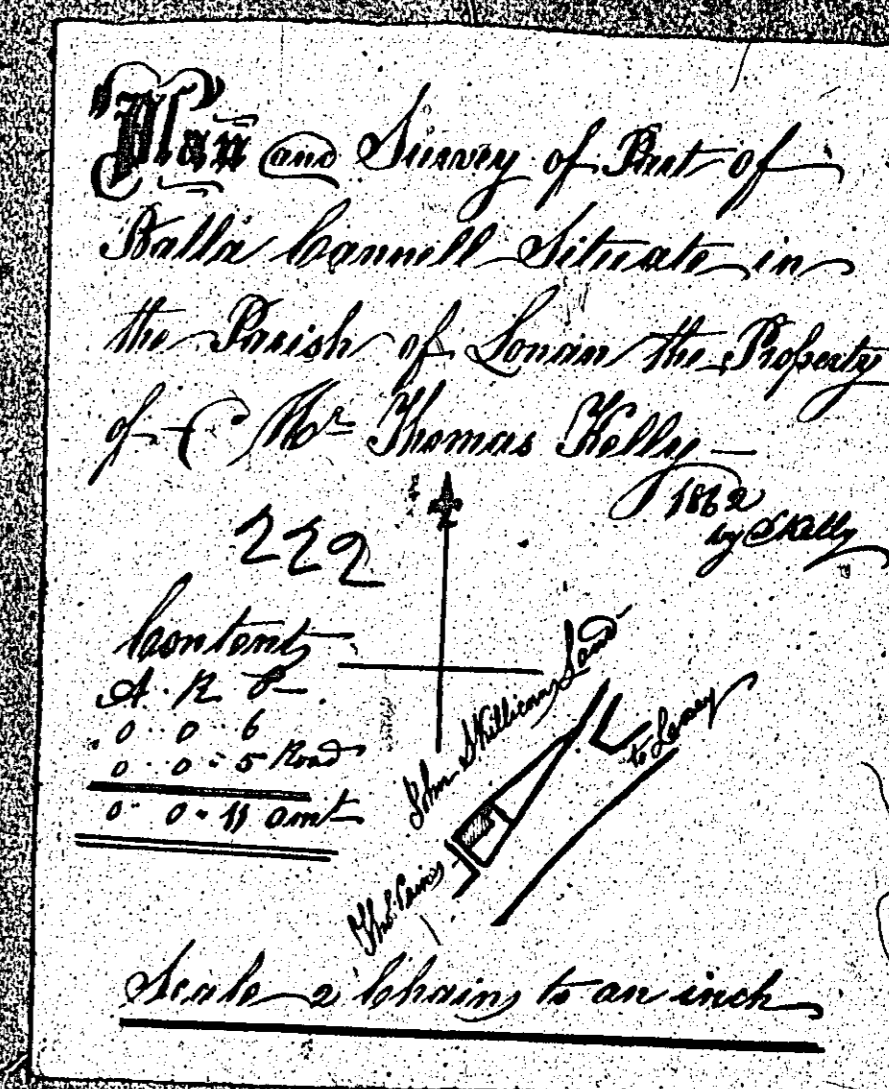 Plan and Survey of Part of
Balla Cannell Situate in
the Parish of Lonan the Property
of Mr Thomas Kelly —
1862
by S Kelly
222
Content
A. R. P
0 .. 0 .. 6
0 .. 0 .. 5 Road
0 .. 0 .. 11 amt
John Skillicorns Land
to Laxey
Thos.
Scale 2 Chains to an inch